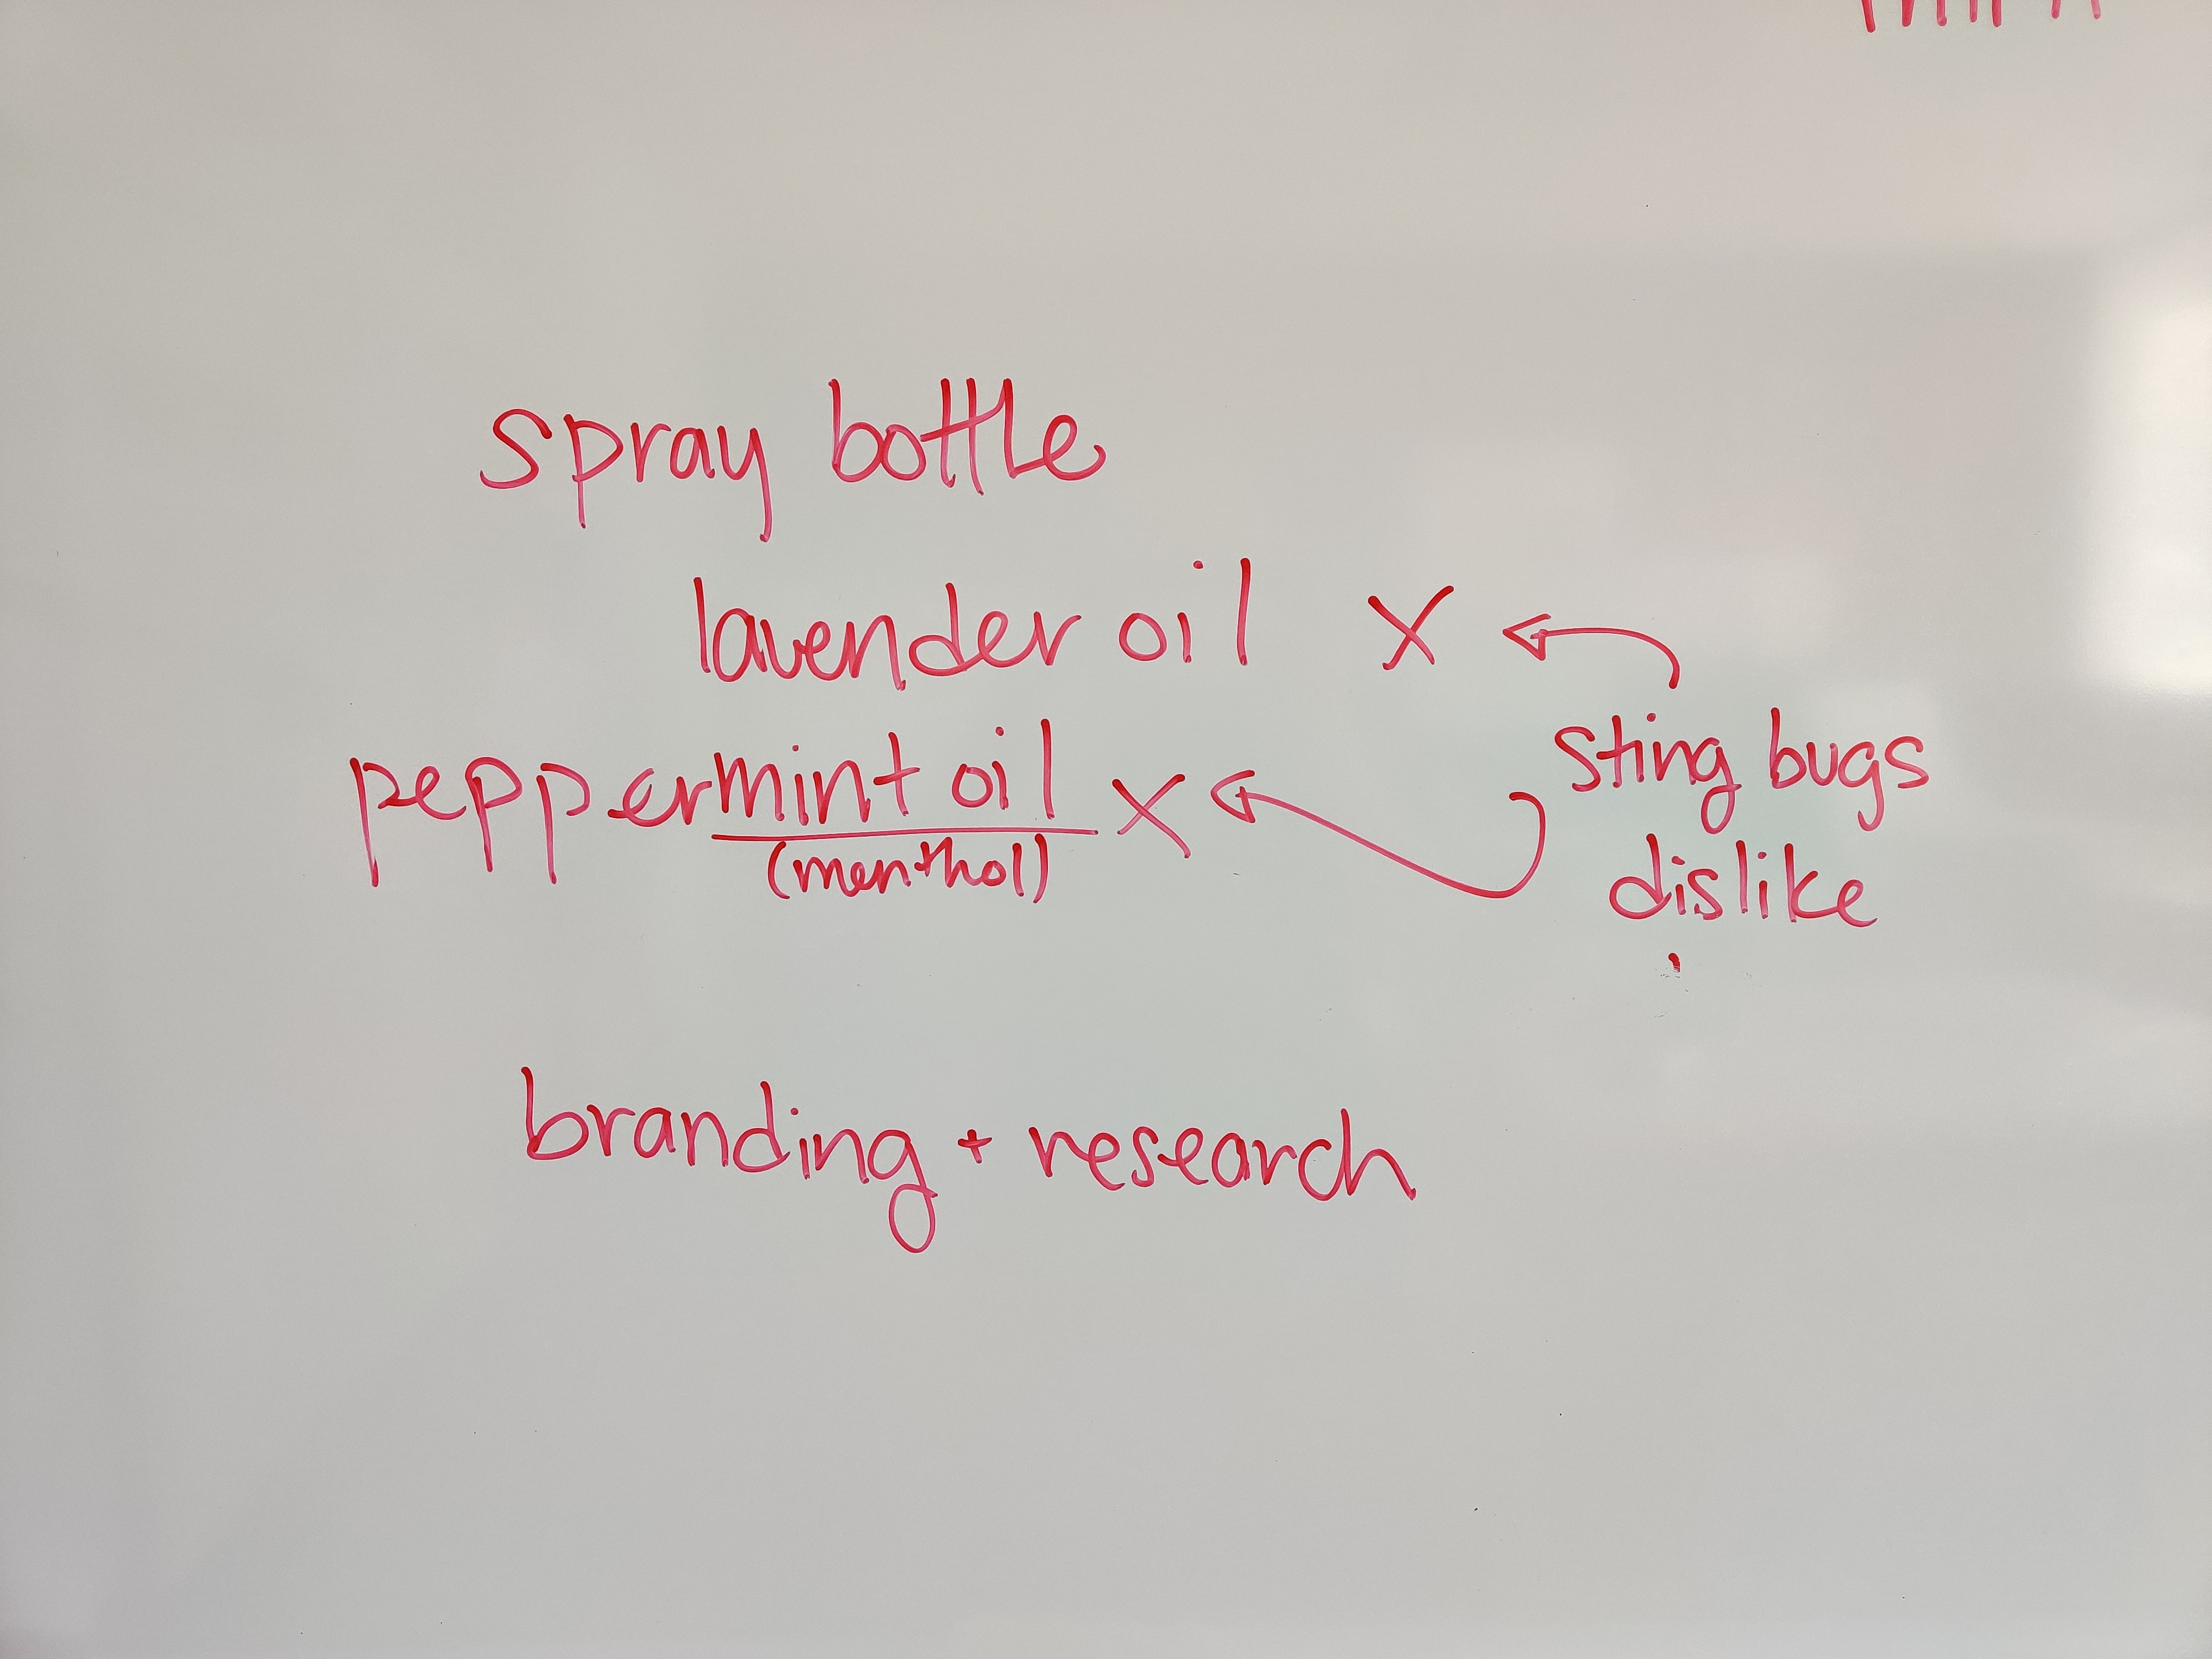 spray bottle
lavender oil X
peppermint oil X
(menthol)
sting bugs
dislike
branding + research